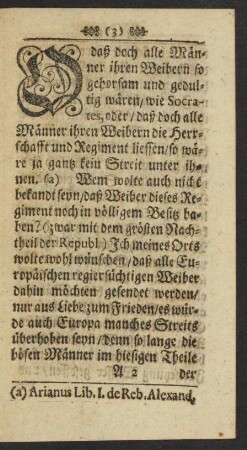 (3)
O daß doch alle Män-
ner ihren Weibern so
gehorsam und gedul-
tig wären/ wie Socra-
tes, oder/ daß doch alle
Männer ihren Weibern die Herr-
schafft und Regiment liessen/ so wä-
re ja gantz kein Streit unter ih-
nen. (a) Wem wolte auch nicht
bekandt seyn/ daß Weiber dieses Re-
giment noch in völligem Besitz ha-
ben? (zwar mit dem grösten Nach-
theil der Republ.) Jch meines Orts
wolte wohl wünschen/ daß alle Eu-
ropäischen regiersüchtigen Weiber
dahin möchten gesendet werden/
nur aus Liebe zum Frieden/ es wür-
de auch Europa manches Streits
überhoben seyn/ denn so lange die
bösen Männer im hiesigen Theile
A 2 der
(a) Arianus Lib. I. de Reb. Alexand.